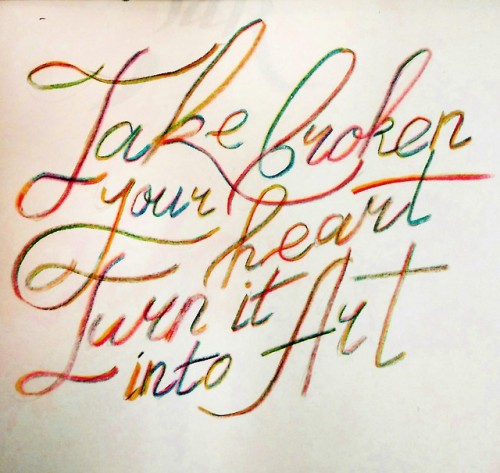 Take broken
your heart
Turn it
into Art